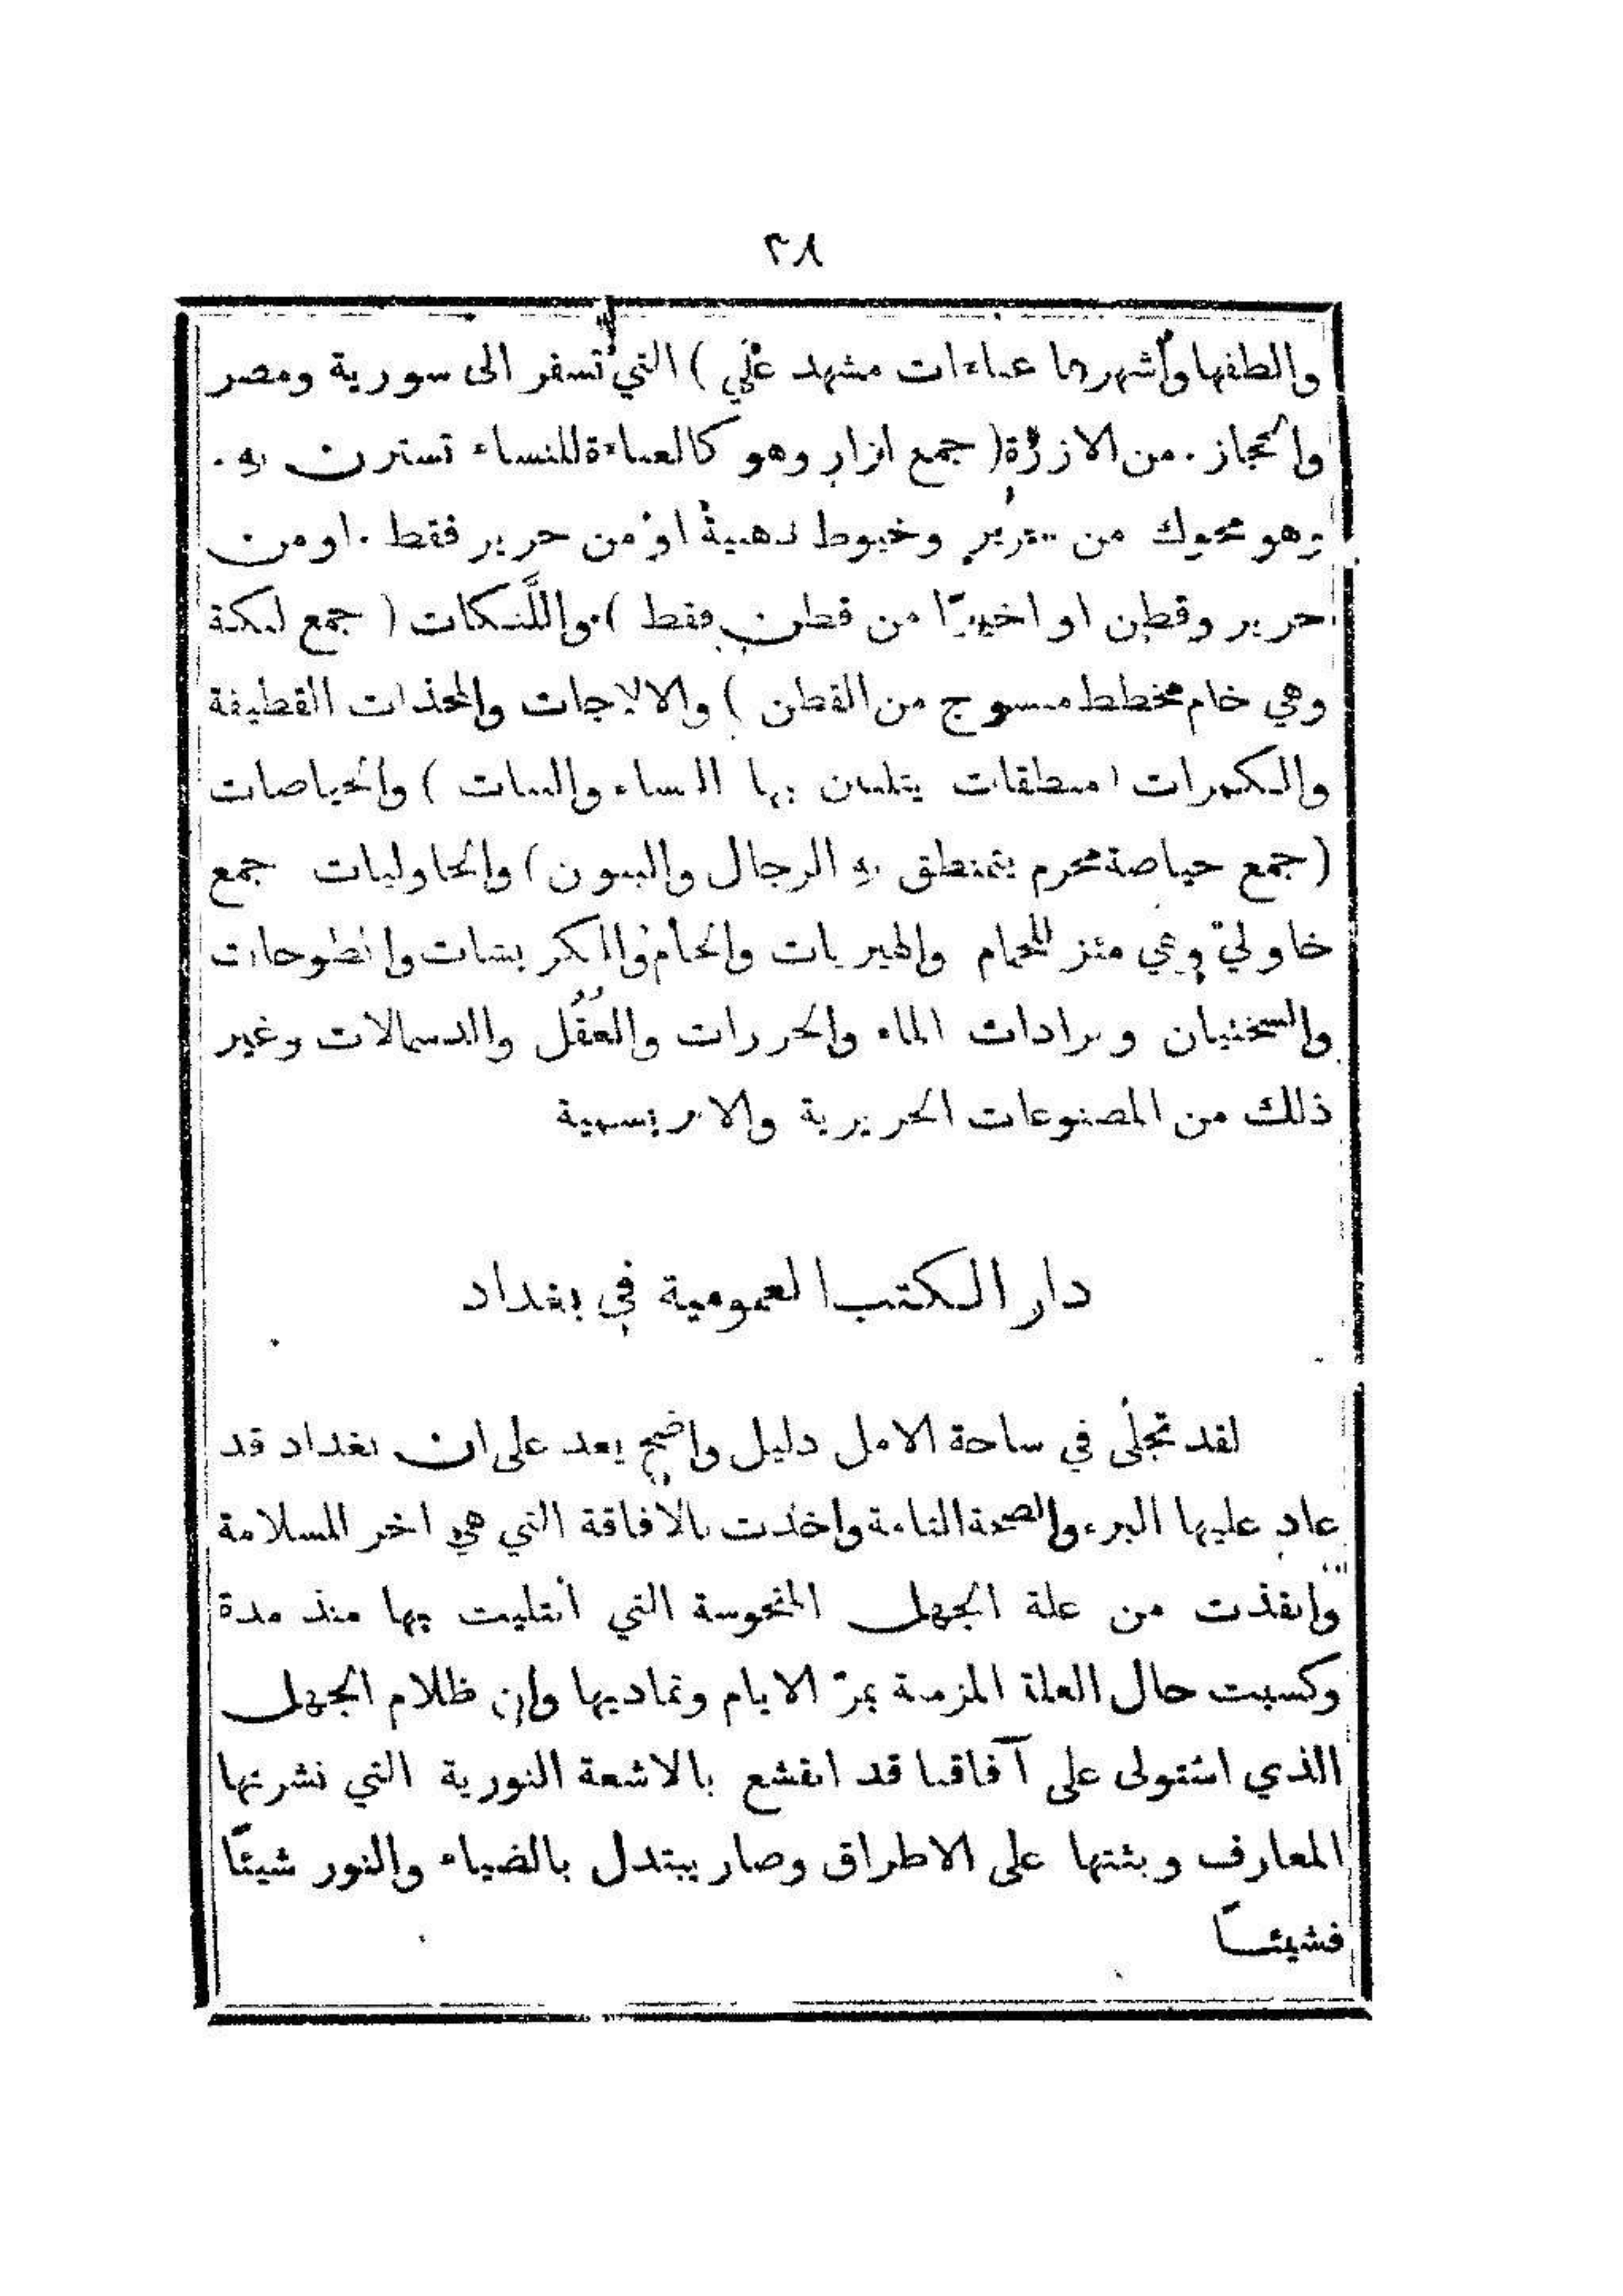 ٢٨
والطفها وأشهرها عباءات مشهد علي ) التي تسفر الى سورية ومصر
والحجاز . من الازرة( جمع ازار وهو كالعباءة للنساء تستترن به .
وهو محوك من حرير وخيوط ذهبية او من حرير فقط . او من
حرير وقطن او اخيرًا من قطن فقط ) واللَّنكات ( جمع لنكة
وهي خام مخطط منسوج من القطن ) والالاجات والمخدات القطيفة
والكمرات ( منطقات يتلبسن بها النساء والبنات ) والحياصات
(جمع حياصة محرم يتمنطق به الرجال والبنون ) والخاوليات جمع
خاوليّ وهي مئزر للحمام والهبريات والخام والكربتات وانطوحات
والسختيان وبرادات الماء والحررات والعُقُل والدسمالات وغير
ذلك من المصنوعات الحريرية والابريسمية
دار الكتب العمومية في بغداد
لقد تجلَّى في ساحة الامل دليل واضح يعد على ان بغداد قد
عاد عليها البرء والصحة التامة واخذت بالافاقة التي هي اخر السلامة
وانقذت من علة الجهل المنحوسة التي ابتليت بها منذ مدة
وكسبت حال العلة المزمنة بمرّ الايام وتماديها وان ظلام الجهل
الذي استولى على آفاقنا قد انقشع بالاشعة النورية التي نشرتها
المعارف وبثتها على الاطراق وصار يبتدل بالضياء والنور شيئًا
فشيئًا